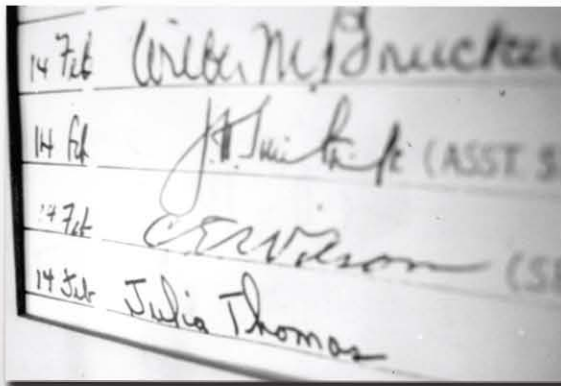 14 Feb Wilber M. Brucker
14 Feb J.H. Smith Jr (ASST. S
14 Feb C E Wilson (SE
14 Feb Julia Thomas